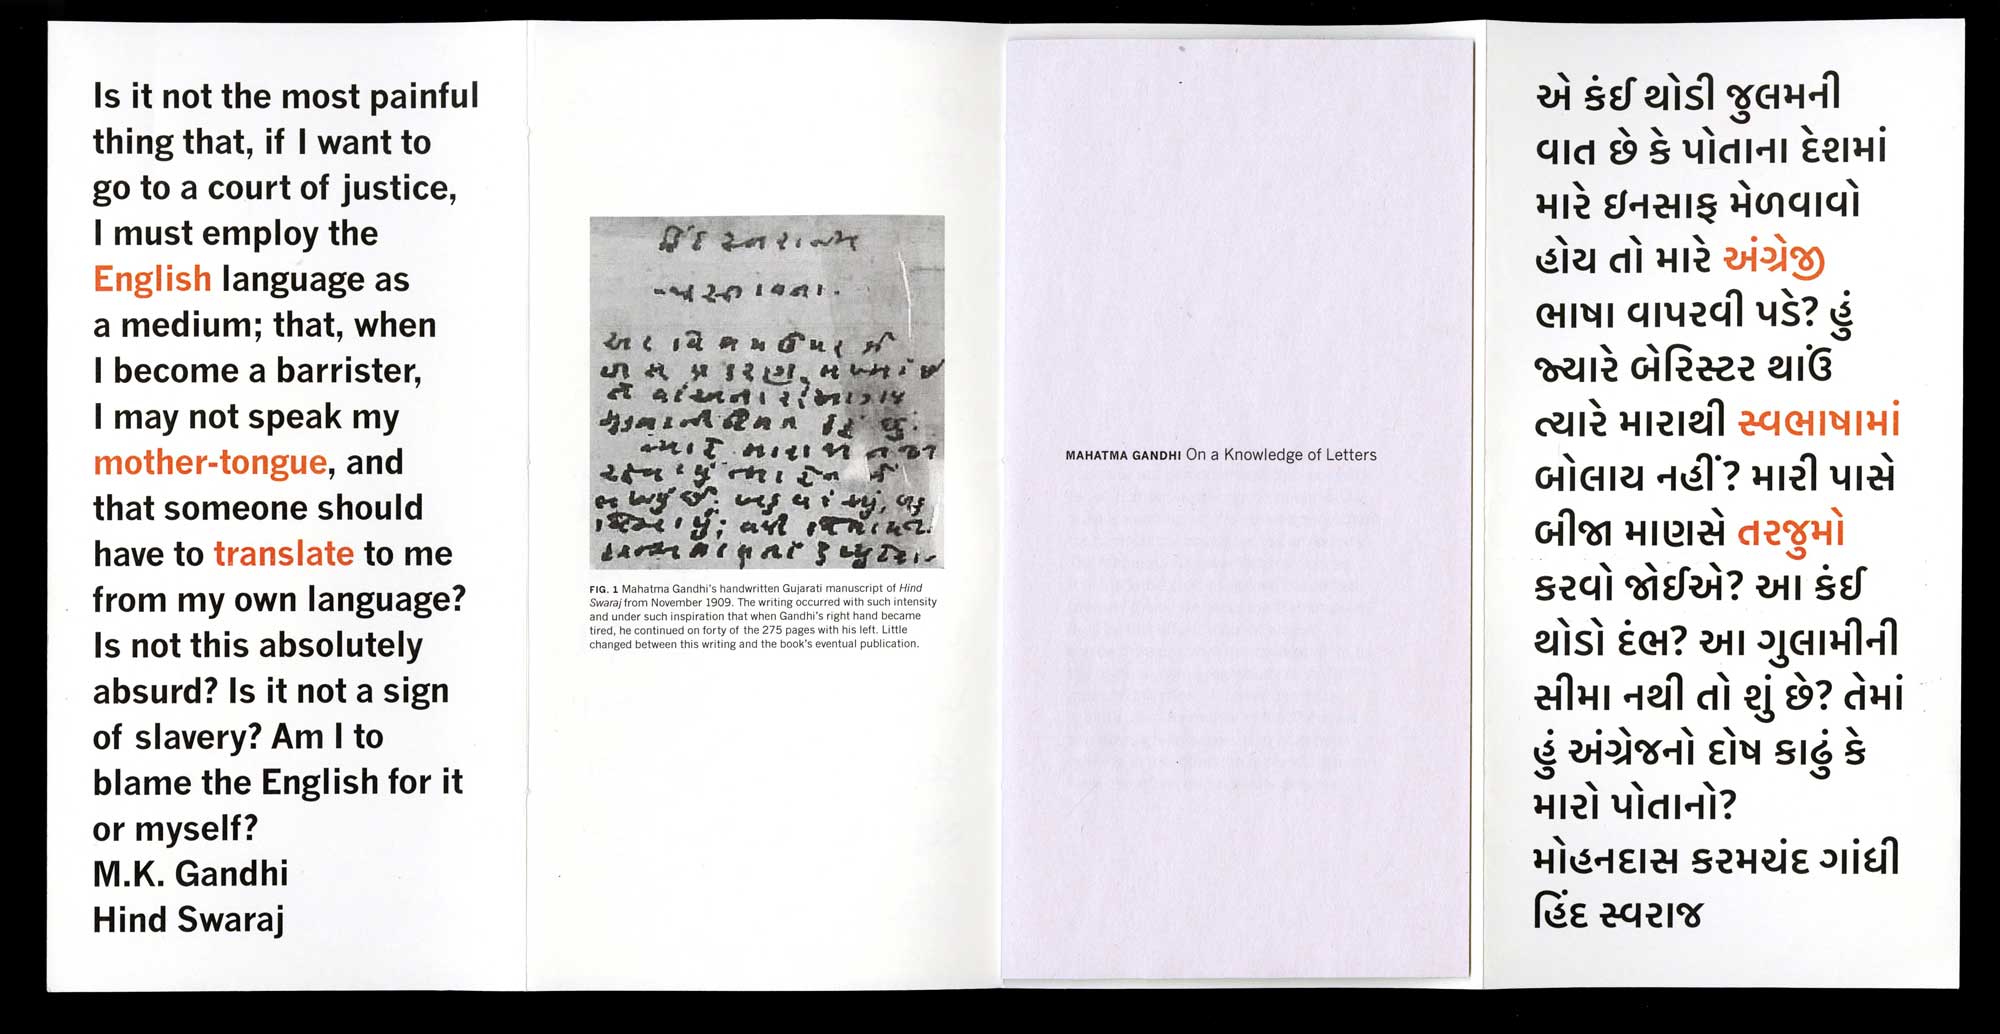 Is it not the most painful
thing that, if I want to
go to a court of justice,
I must employ the
English language as
a medium; that, when
I become a barrister,
I may not speak my
mother-tongue, and
that someone should
have to translate to me
from my own language?
Is not this absolutely
absurd? Is it not a sign
of slavery? Am I to
blame the English for it
or myself?
M.K. Gandhi
Hind Swaraj
FIG. 1 Mahatma Gandhi's handwritten Gujarati manuscript of Hind
Swaraj from November 1909. The writing occurred with such intensity
and under such inspiration that when Gandhi's right hand became
tired, he continued on forty of the 275 pages with his left. Little
changed between this writing and the book's eventual publication.
MAHATMA GANDHI On a Knowledge of Letters
એ કંઈ થોડી જુલમની
વાત છે કે પોતાના દેશમાં
મારે ઇનસાફ મેળવાવો
હોય તો મારે અંગ્રેજી
ભાષા વાપરવી પડે? હું
જ્યારે બેરિસ્ટર થાઉં
ત્યારે મારાથી સ્વભાષામાં
બોલાય નહીં? મારી પાસે
બીજા માણસે તરજુમો
કરવો જોઈએ? આ કંઈ
થોડો દંભ? આ ગુલામીની
સીમા નથી તો શું છે? તેમાં
હું અંગ્રેજનો દોષ કાઢું કે
મારો પોતાનો?
મોહનદાસ કરમચંદ ગાંધી
હિંદ સ્વરાજ